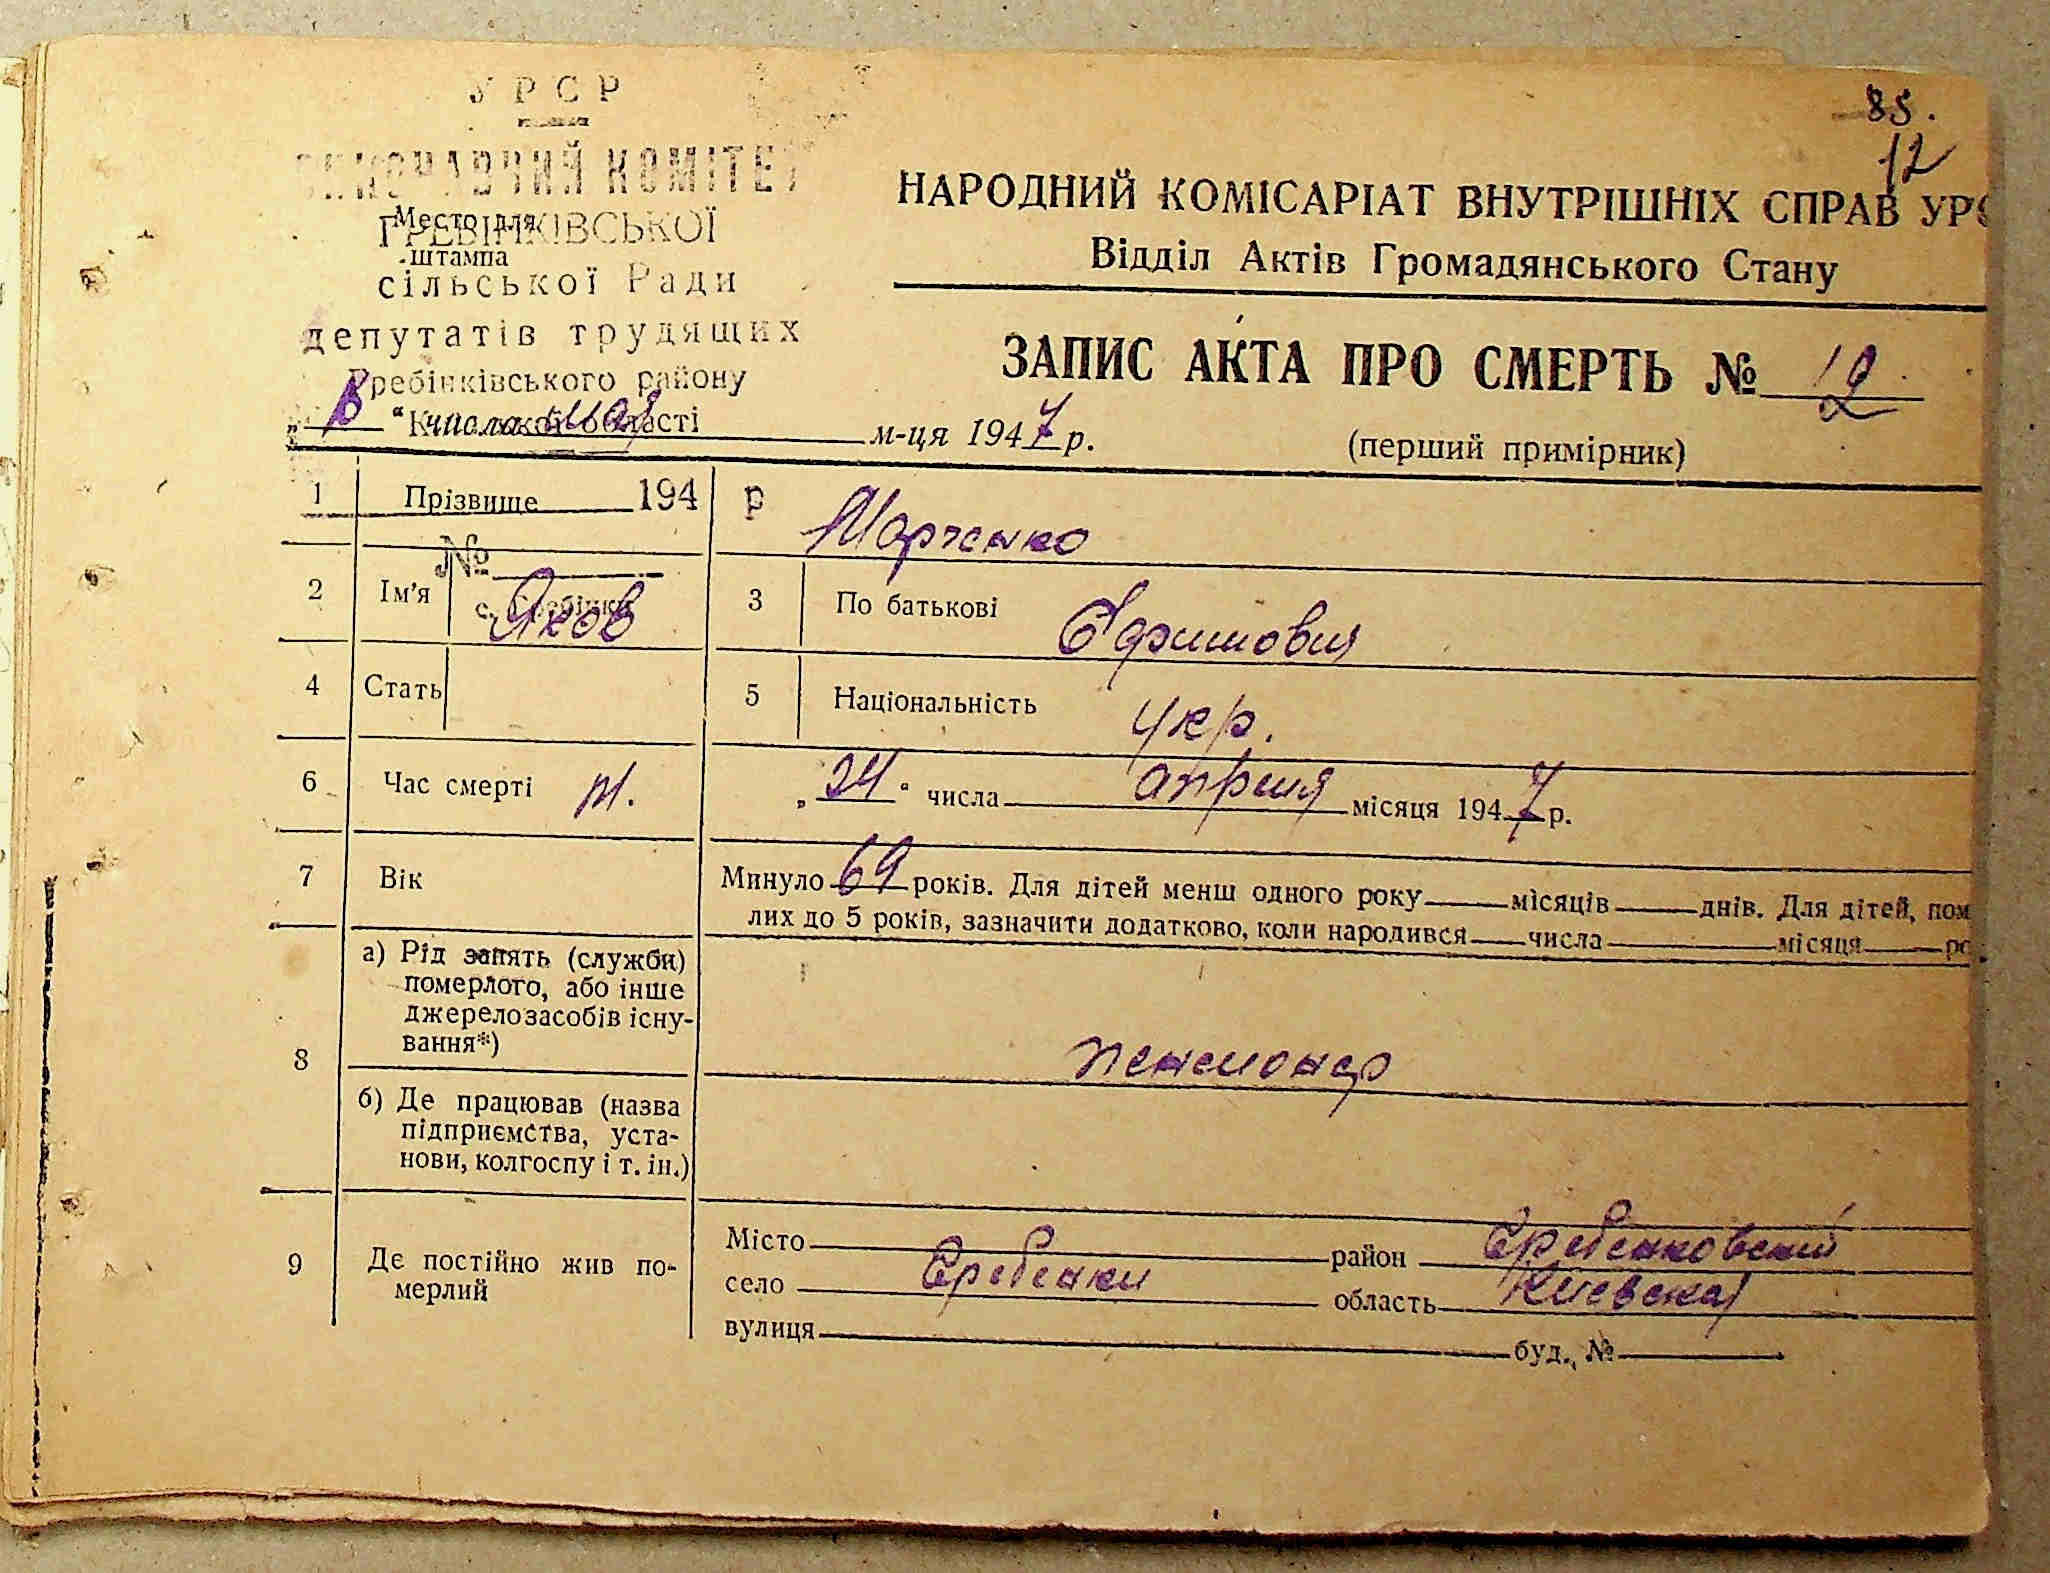 УРСР
ВИКОНАВЧИЙ КОМІТЕТ
ГРЕБІНКІВСЬКОЇ
Место для
штампа
сільської Ради
депутатів трудящих
Гребінківського району
Київської області
85.
12
НАРОДНИЙ КОМІСАРІАТ ВНУТРІШНІХ СПРАВ УРС
Відділ Актів Громадянського Стану
ЗАПИС АКТА ПРО СМЕРТЬ № 12
„ “ числа мая м-ця 1947 р. (перший примірник)
1 Прізвище Марченко
194 р
№
с. Гребінки
2 Ім'я Яков 3 По батькові Ефимович
4 Стать 5 Національність укр.
6 Час смерті м. „24“ числа апреля місяця 1947 р.
7 Вік Минуло 69 років. Для дітей менш одного року місяців днів. Для дітей, пом
лих до 5 років, зазначити додатково, коли народився числа місяця ро
8 а) Рід занять (служби)
померлого, або інше
джерело засобів існу-
вання*) пенсионер
б) Де працював (назва
підприємства, уста-
нови, колгоспу і т. ін.)
9 Де постійно жив по-
мерлий
Місто район Гребенковский
село Гребенки область Киевская
вулиця буд. №